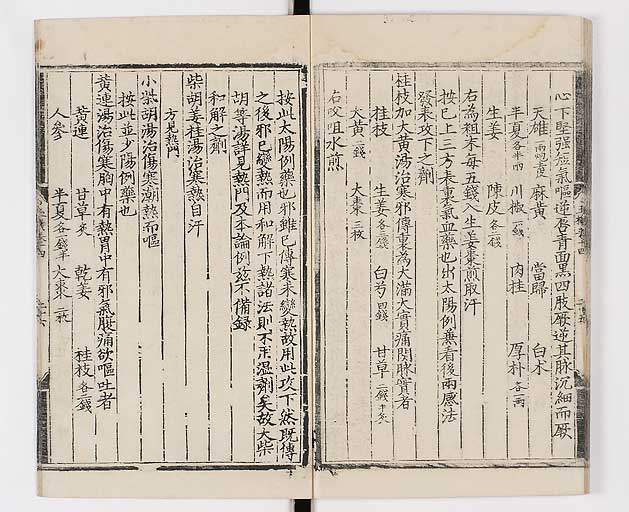 心下堅強短氣嘔逆唇青面黑四肢厥逆其脉沉細而厥
天雄 麻黄 當歸 白术
半夏各半两 川椒 肉桂 厚朴各一两
生姜 陳皮各二錢
右為粗末每五錢入生姜棗煎取汗
按已上三方表裏氣血藥也出太陽例兼看後兩感法
發表攻下之劑
桂枝加大黄湯治寒邪傳裏為大滿大實痛関脉實者
桂枝 生姜各三錢 白芍四錢 甘草二錢半炙
大黄二錢 大棗三枚
右㕮咀水煎
按此太陽例藥也邪雖已傳寒未變熱故用此攻下然既傳
之後邪已變熱而用和解下熱諸法則不用温劑矣故大柴
胡等湯詳見熱門及本論例兹不備録
和解之劑
柴胡姜桂湯治寒熱自汗
方見熱門
小柴胡湯治傷寒潮熱而嘔
按此並少陽例藥也
黄連湯治傷寒胸中有熱胃中有邪氣腹痛欲嘔吐者
黄連 甘草炙 乾姜 桂枝各三錢
人參 半夏 大棗二枚